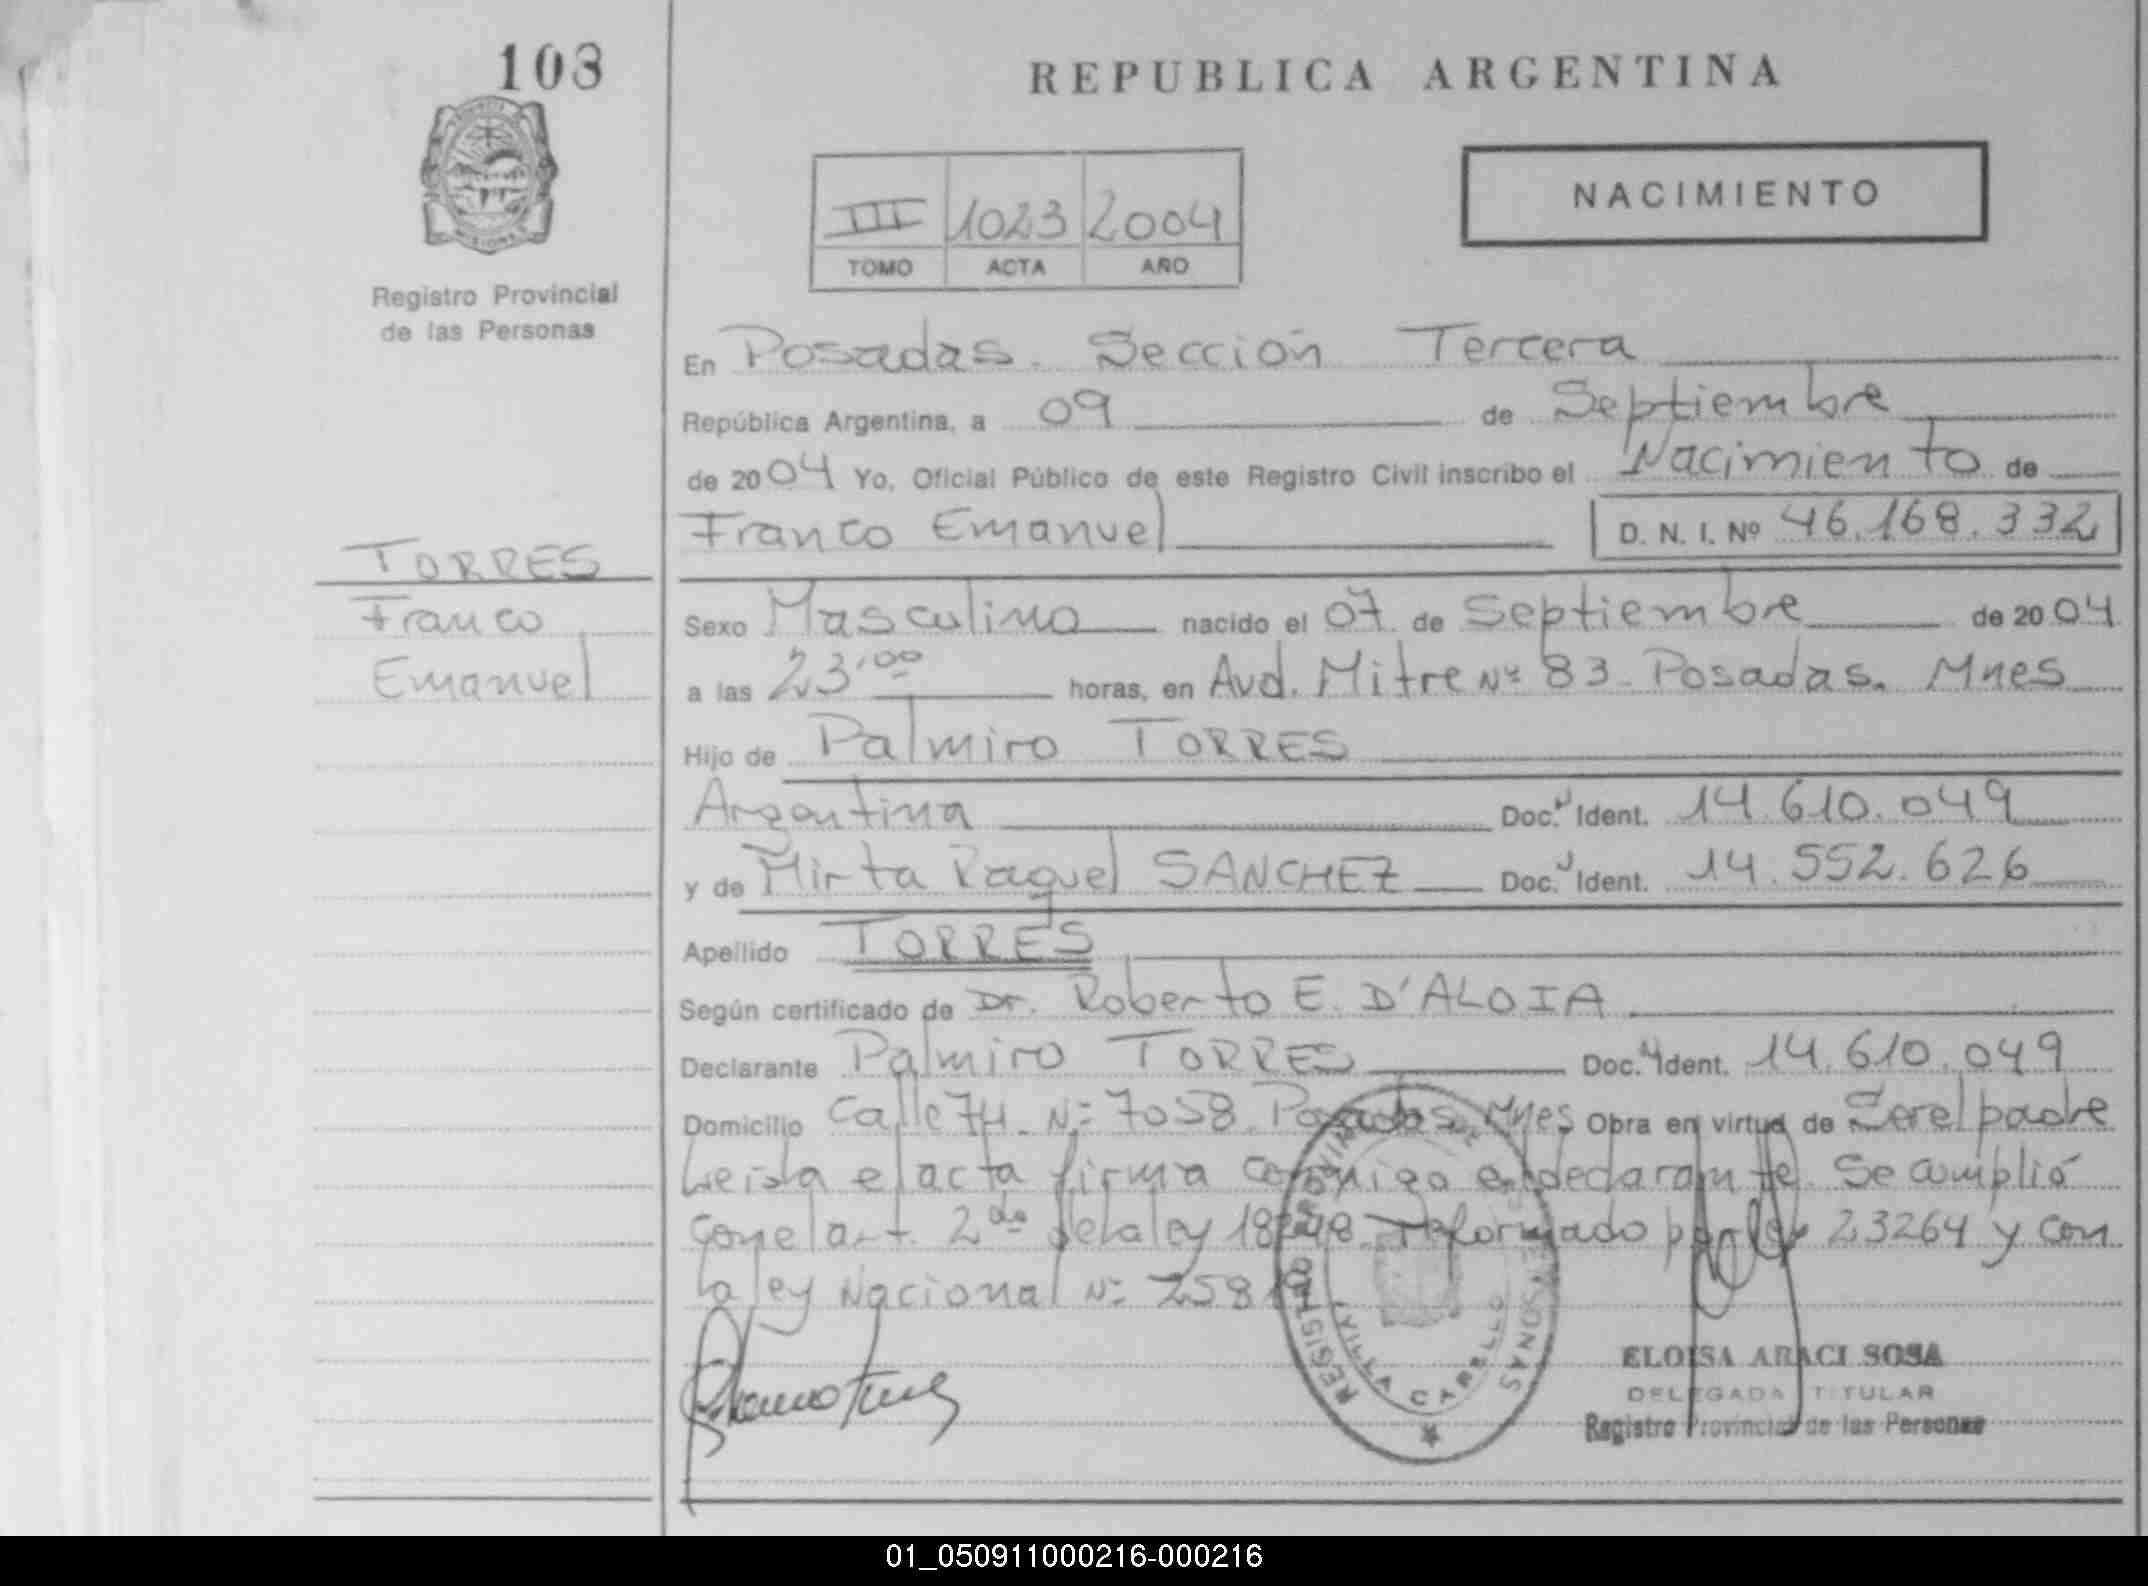 103
REPUBLICA ARGENTINA
NACIMIENTO
III 1023 2004
TOMO ACTA AÑO
MISIONES
Registro Provincial
de las Personas
En Posadas. Sección Tercera
República Argentina, a 09 de Septiembre
de 2004 Yo, Oficial Público de este Registro Civil inscribo el Nacimiento de
Franco Emanuel D. N. I. Nº 46.168.332
TORRES
Franco
Emanuel
Sexo Masculino nacido el 07 de Septiembre de 2004
a las 23,00 horas, en Avd. Mitre Nº 83. Posadas. Mnes
Hijo de Palmiro TORRES
Argentina Doc. N Ident. 14.610.049
y de Mirta Raquel SANCHEZ Doc. Ident. 14.552.626
Apellido TORRES
Según certificado de Dr. Roberto E. D'ALOIA
Declarante Palmiro TORRES Doc. N Ident. 14.610.049
Domicilio Calle 74. Nº 7058. Posadas Mnes Obra en virtud de Ser el padre
Leida el acta firma conmigo el declarante. Se cumplió
con el art. 2do de la ley 18248 reformado por ley 23264 y con
la ley Nacional Nº 258
REGISTRO PROVINCIAL DE PERSONAS
VILLA CABELLO
ELOISA ARACI SOSA
DELEGADA TITULAR
Registro Provincial de las Personas
01_050911000216-000216